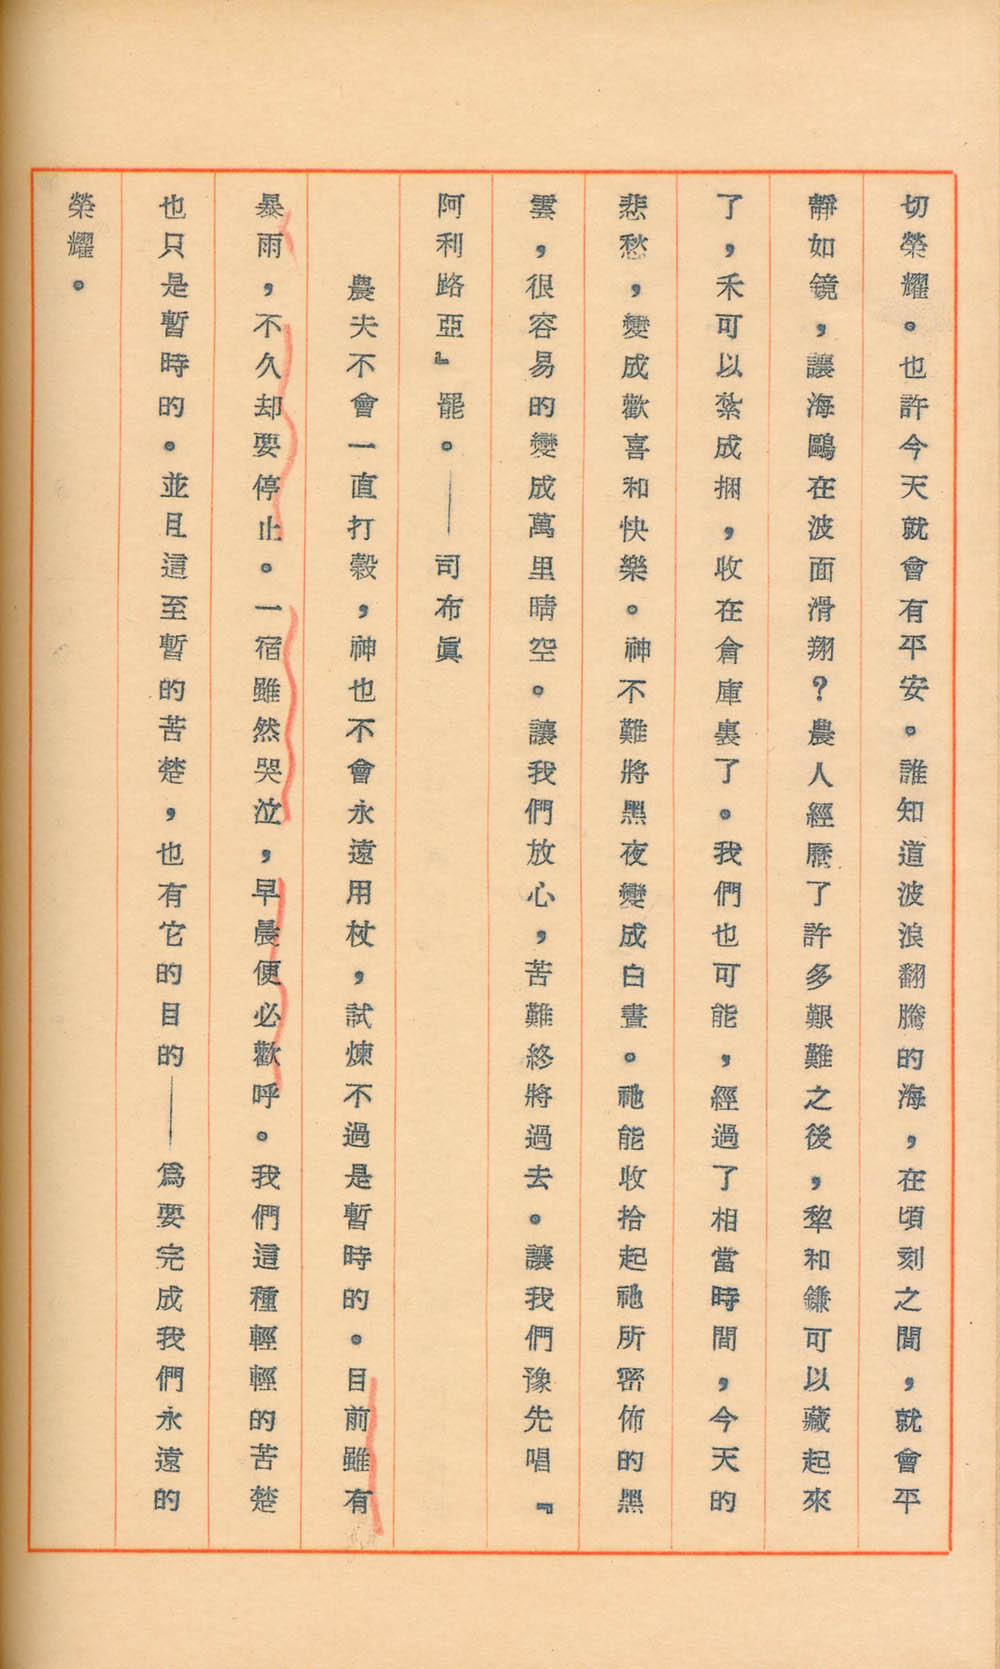 切榮耀。也許今天就會有平安。誰知道波浪翻騰的海，在頃刻之間，就會平
靜如鏡，讓海鷗在波面滑翔？農人經歷了許多艱難之後，犂和鎌可以藏起來
了，禾可以紮成捆，收在倉庫裏了。我們也可能，經過了相當時間，今天的
悲愁，變成歡喜和快樂。神不難將黑夜變成白晝。祂能收拾起祂所密佈的黑
雲，很容易的變成萬里晴空。讓我們放心，苦難終將過去。讓我們豫先唱『
阿利路亞』罷。——司布眞
農夫不會一直打穀，神也不會永遠用杖，試煉不過是暫時的。目前雖有
暴雨，不久却要停止。一宿雖然哭泣，早晨便必歡呼。我們這種輕輕的苦楚
也只是暫時的。並且這至暫的苦楚，也有它的目的——爲要完成我們永遠的
榮耀。